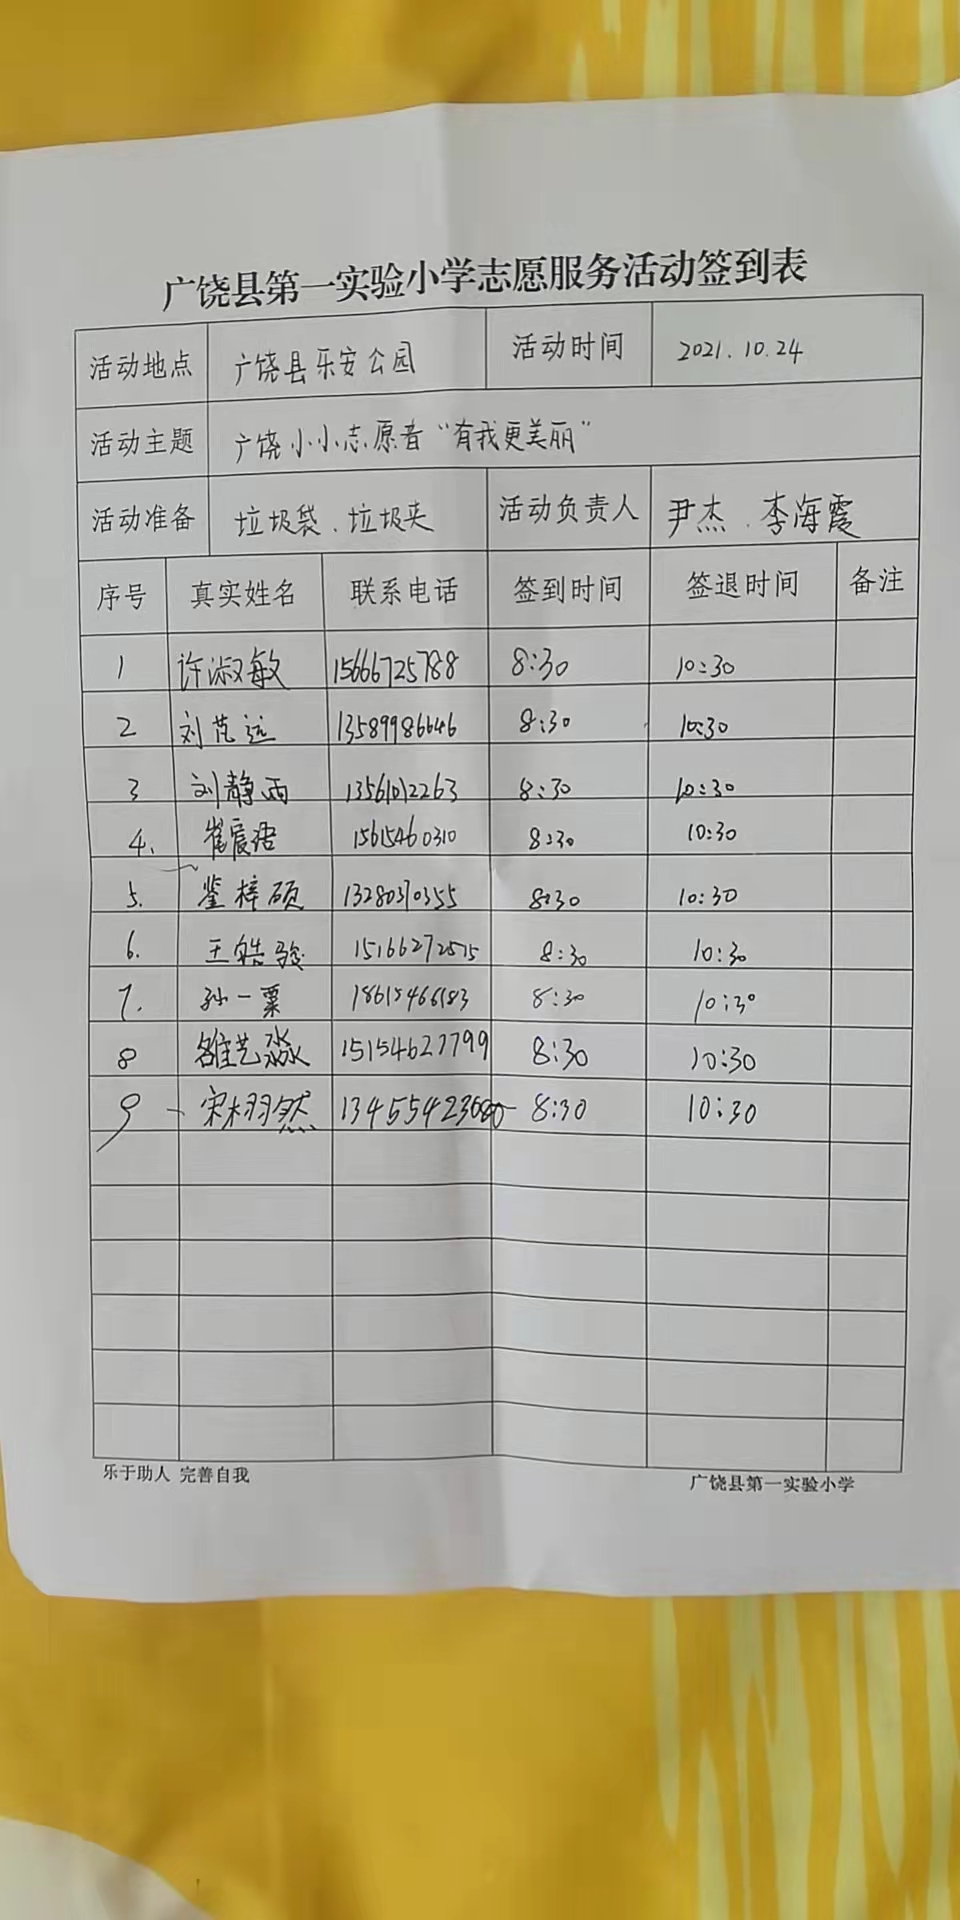 广饶县第一实验小学志愿服务活动签到表
活动地点 广饶县乐安公园 活动时间 2021.10.24
活动主题 广饶小小志愿者“有我更美丽”
活动准备 垃圾袋、垃圾夹 活动负责人 尹杰、李海霞
序号 真实姓名 联系电话 签到时间 签退时间 备注
1 许淑敏 15666725788 8:30 10:30
2 刘芃远 13589986646 8:30 10:30
3 刘静雨 13561012263 8:30 10:30
4. 崔宸语 15615460310 8:30 10:30
5. 梓硕 13280370355 8:30 10:30
6. 王皓骏 15166272515 8:30 10:30
7. 孙一粟 18615466183 8:30 10:30
8 雒艺淼 15154627799 8:30 10:30
9 宋栩然 8:30 10:30
乐于助人 完善自我 广饶县第一实验小学